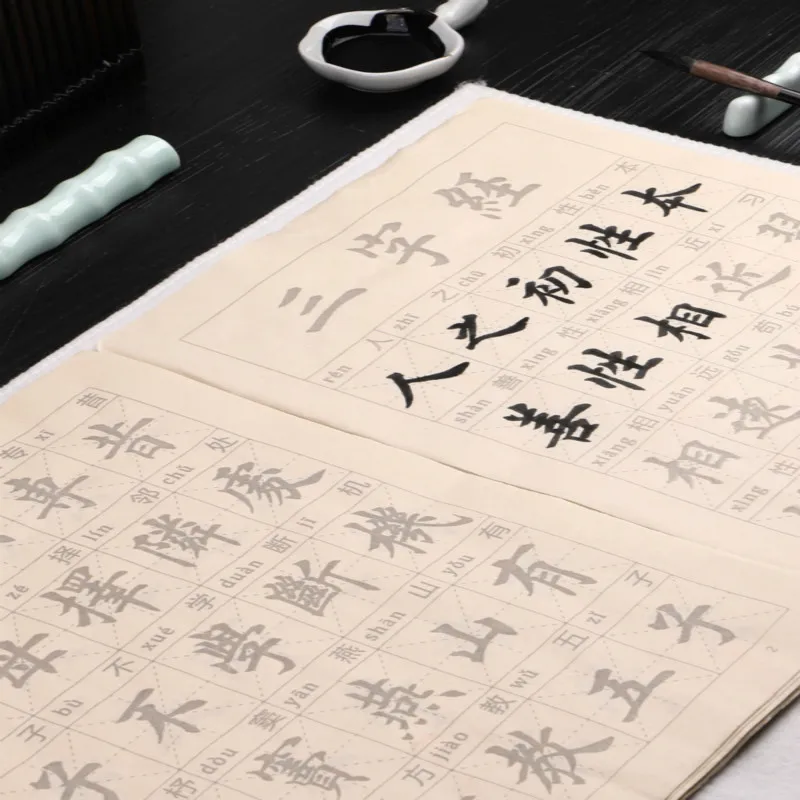 三字經
rén 人 zhī 之 chū 初 xìng 性 běn 本
人之初性本
shàn 善 xìng 性 xiāng 相 jìn 近 xí 习
善性相近習
xiāng 相 yuǎn 远 gǒu 苟 bú
相遠
xìng 性
专 xī 昔
專昔
zé 择 lín 邻 chǔ 处
母擇鄰處
子 bù 不 xué 学 duàn 断 jī 机
子不學斷機
杼 dòu 窦 yān 燕 shān 山 yǒu 有
竇燕山有
方 jiào 教 wǔ 五 zǐ 子
教五子
2